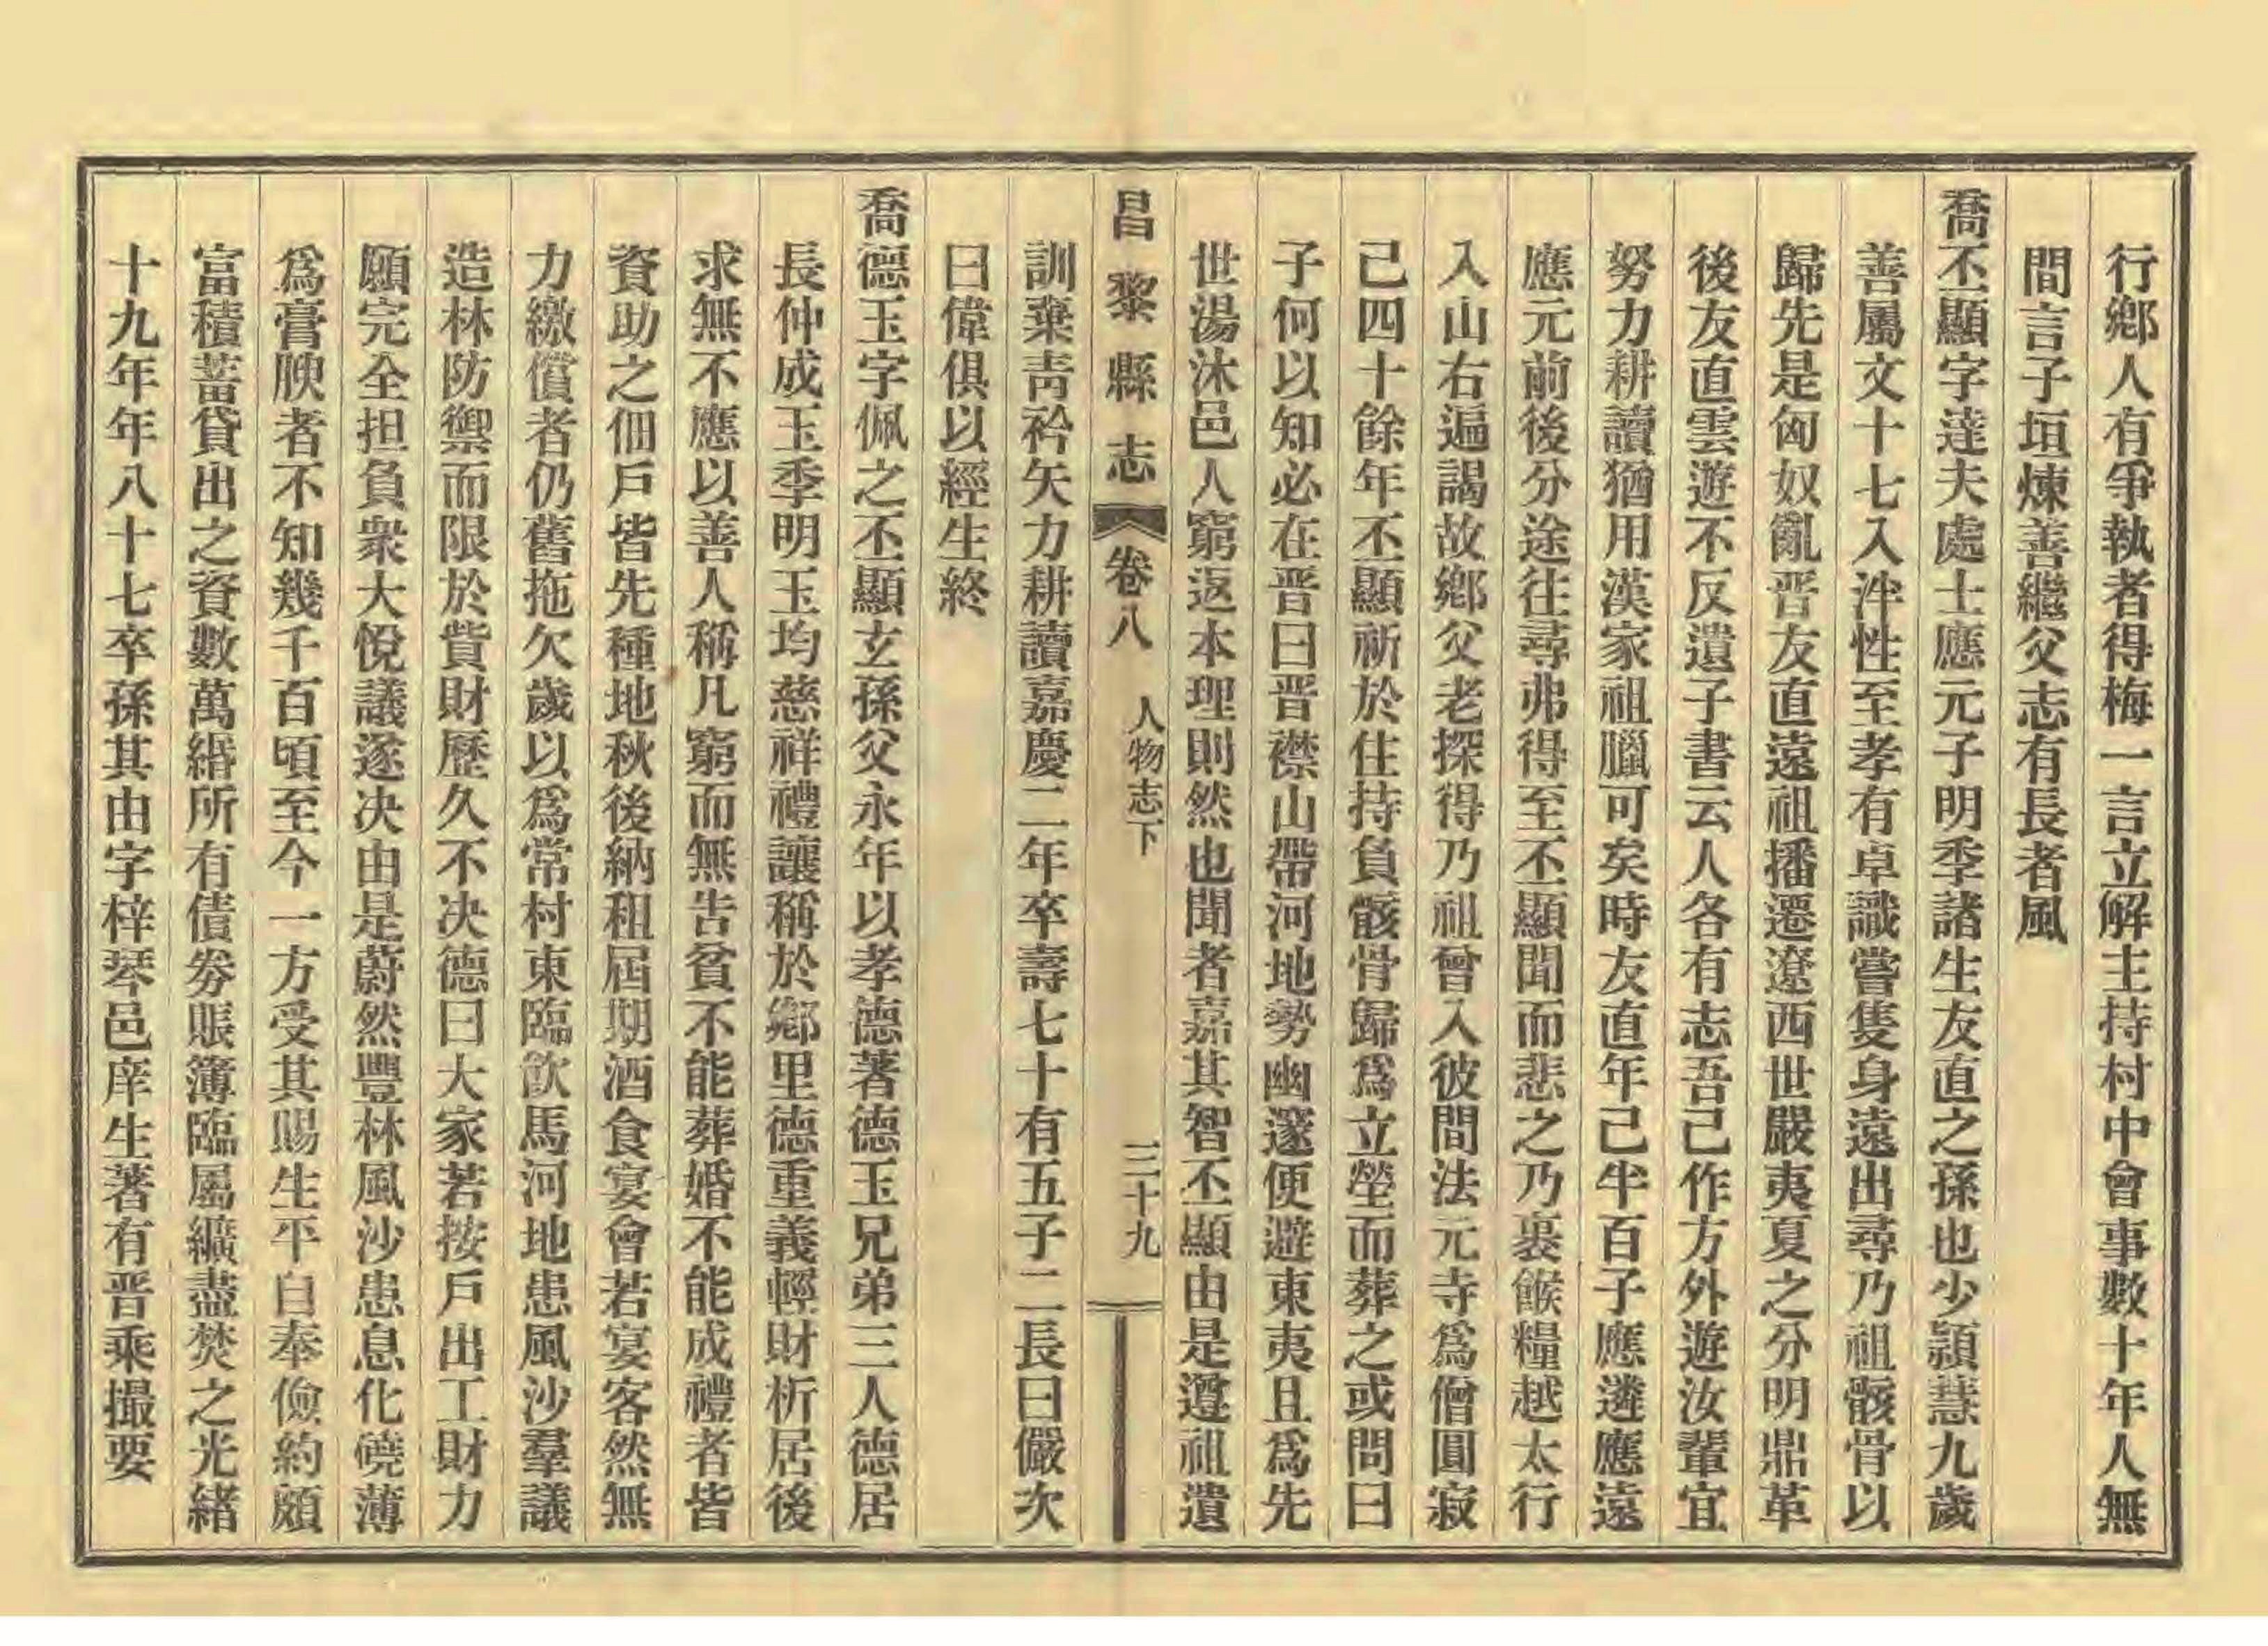 行鄉人有爭執者得梅一言立解主持村中會事數十年人無
間言子垣煉善繼父志有長者風
喬丕顯字達夫處士應元子明季諸生友直之孫也少穎慧九歲
善屬文十七入泮性至孝有卓識嘗隻身遠出尋乃祖骸骨以
歸先是匈奴亂晋友直遠祖播遷遼西世嚴夷夏之分明鼎革
後友直雲遊不反遺子書云人各有志吾己作方外遊汝輩宜
努力耕讀猶用漢家祖臘可矣時友直年己半百子應遴應遠
應元前後分途往尋弗得至丕顯聞而悲之乃裹餱糧越太行
入山右遍謁故鄉父老探得乃祖曾入彼間法元寺為僧圓寂
己四十餘年丕顯祈於住持負骸骨歸為立塋而葬之或問曰
子何以知必在晋曰晋襟山帶河地勢幽邃便避東夷且為先
世湯沐邑人窮返本理則然也聞者嘉其智丕顯由是遵祖遺
昌黎縣志 卷八 人物志下 三十九
訓棄青衿矢力耕讀嘉慶二年卒壽七十有五子二長曰儼次
曰偉俱以經生終
喬德玉字佩之丕顯玄孫父永年以孝德著德玉兄弟三人德居
長仲成玉季明玉均慈祥禮讓稱於鄉里德重義輕財析居後
求無不應以善人稱凡窮而無告貧不能葬婚不能成禮者皆
資助之佃戶皆先種地秋後納租屆期酒食宴會若宴客然無
力繳償者仍舊拖欠歲以為常村東臨飲馬河地患風沙羣議
造林防禦而限於貲財歷久不决德曰大家若按戶出工財力
願完全担負衆大悅議遂决由是蔚然豐林風沙患息化磽薄
為膏腴者不知幾千百頃至今一方受其賜生平自奉儉約頗
富積蓄貸出之資數萬緡所有債劵賬簿臨屬纊盡焚之光緒
十九年年八十七卒孫其由字梓琴邑庠生著有晋乘撮要